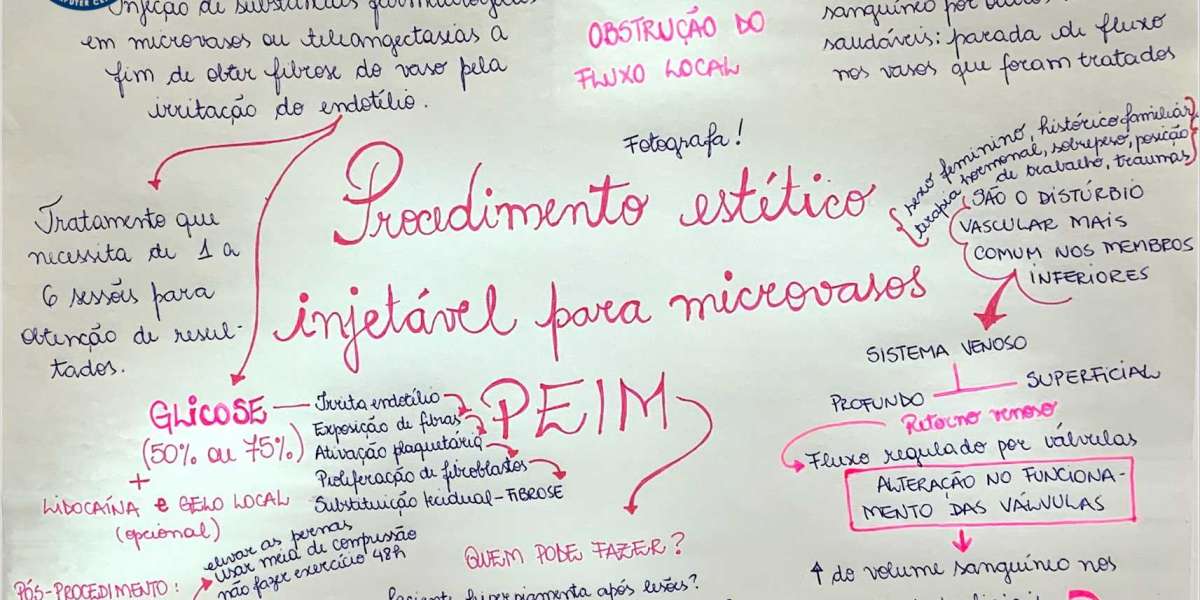 Injeção de substâncias
em microvasos ou teleangectasias a
fim de obter fibrose do vaso pela
irritação do endotélio.
OBSTRUÇÃO DO
FLUXO LOCAL
sanguíneo por
saudáveis: parada de fluxo
nos vasos que foram tratados
Fotografa!
Procedimento estético
injetável para microvasos
PEIM
Tratamento que
necessita de 1 a
6 sessões para
obtenção de resul-
tados.
sexo feminino, histórico familiar,
terapia hormonal, sobrepeso, posição
de trabalho, traumas
SÃO O DISTÚRBIO
VASCULAR MAIS
COMUM NOS MEMBROS
INFERIORES
SISTEMA VENOSO
SUPERFICIAL
PROFUNDO
Retorno venoso
Fluxo regulado por válvulas
ALTERAÇÃO NO FUNCIONA-
MENTO DAS VÁLVULAS
↑ do volume sanguíneo nos
GLICOSE
(50% ou 75%)
+
LIDOCAÍNA e GELO LOCAL
(opcional)
Irrita endotélio
Exposição de fibras
Ativação plaquetária
Proliferação de fibroblastos
Substituição tecidual - FIBROSE
PÓS-PROCEDIMENTO:
elevar as pernas
usar meia de compressão
não fazer exercício 48h
QUEM PODE FAZER?
Paciente hiperpigmenta após lesões?